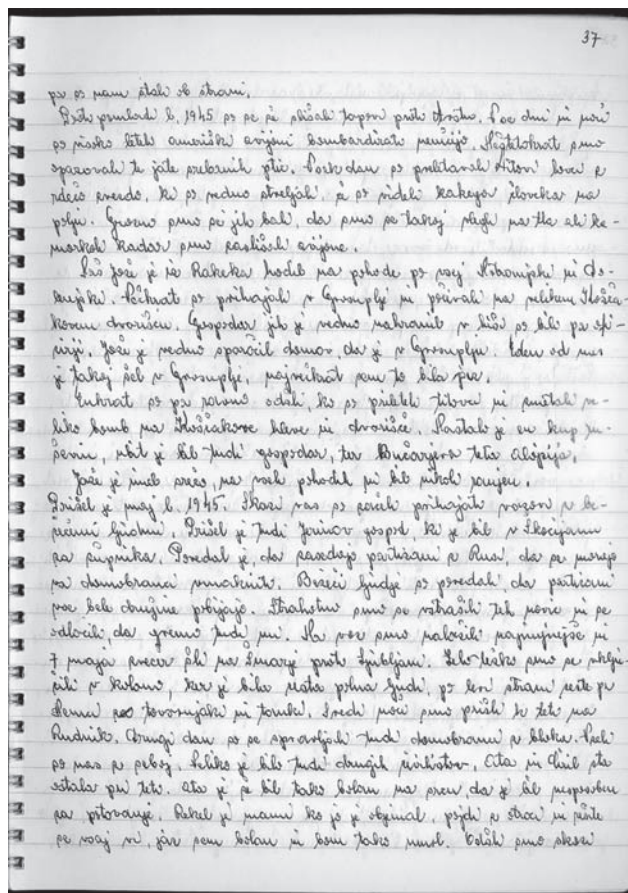 37
pa so nam stali ob strani.
Proti pomladi l. 1945 so se že slišali topovi proti Krasu. Vse dni in noči
so visoko leteli ameriški avijoni bombardirati nemčijo. Neštetokrat smo
opazovali te jate srebrnih ptic. Vsak dan so preletavali titovi lovci z
rdečo zvezdo, ki so vedno streljali, če so videli kakega človeka na
polju. Grozno smo se jih bali, da smo se takoj vlegli na tla ali ka-
morkoli kadar smo zaslišali avijone.
Naš Jože je iz Rakeka hodil na pohode po vsej Notranjski in Do-
lenjski. Večkrat so prihajali v Grosuplje in počivali na velikem Košča-
kovem dvorišču. Gospodar jih je vedno nahranil v hiši so bili pa ofi-
cirji. Jože je vedno sporočil domov, da je v Grosuplju. Eden od nas
je takoj šel v Grosuplje, največkrat sem to bila jaz.
Enkrat so pa ravno odšli, ko so prileteli titovci in spuščali ve-
liko bomb na Koščakove hleve in dvorišče. Postal je en kup ru-
ševin, ubit je bil tudi gospodar, ter Bučarjeva teta Alojzija.
Jože je imel srečo, na vseh pohodih ni bil nikoli ranjen.
Prišel je maj l. 1945. Skozi vas so začeli prihajati vozovi z be-
žečimi ljudmi. Prišel je tudi Jernov gospod, ki je bil v Škocijanu
za župnika. Povedal je, da zasedajo partizani z Rusi, da se morajo
vsi domobranci umakniti. Bežeči ljudje so povedali, da partizani
vse bele družine pobijajo. Strahotno smo se ustrašili teh novic in se
odločili, da gremo tudi mi. Na voz smo naložili najnujnejše in
7 maja zvečer šli na Šmarje proti Ljubljani. Zelo težko smo se vklju-
čili v kolono, ker je bila cesta polna ljudi, po levi strani ceste pa
Nemci s tovornjaki in tanki. Sredi noči smo prišli k teti na
Rudnik. Drugi dan so se spravljali tudi domobranci z bloka. Vzeli
so nas s seboj. Veliko je bilo tudi drugih civilistov. Ata in Ciril sta
ostala pri teti. Ata je že bil tako bolan na srcu, da je bil nesposoben
za potovanje. Rekel je mami ko jo je objemal, pojdi z otroci in rešite
se vsaj vi, jaz sem bolan in bom tako umrl. Odšli smo skozi